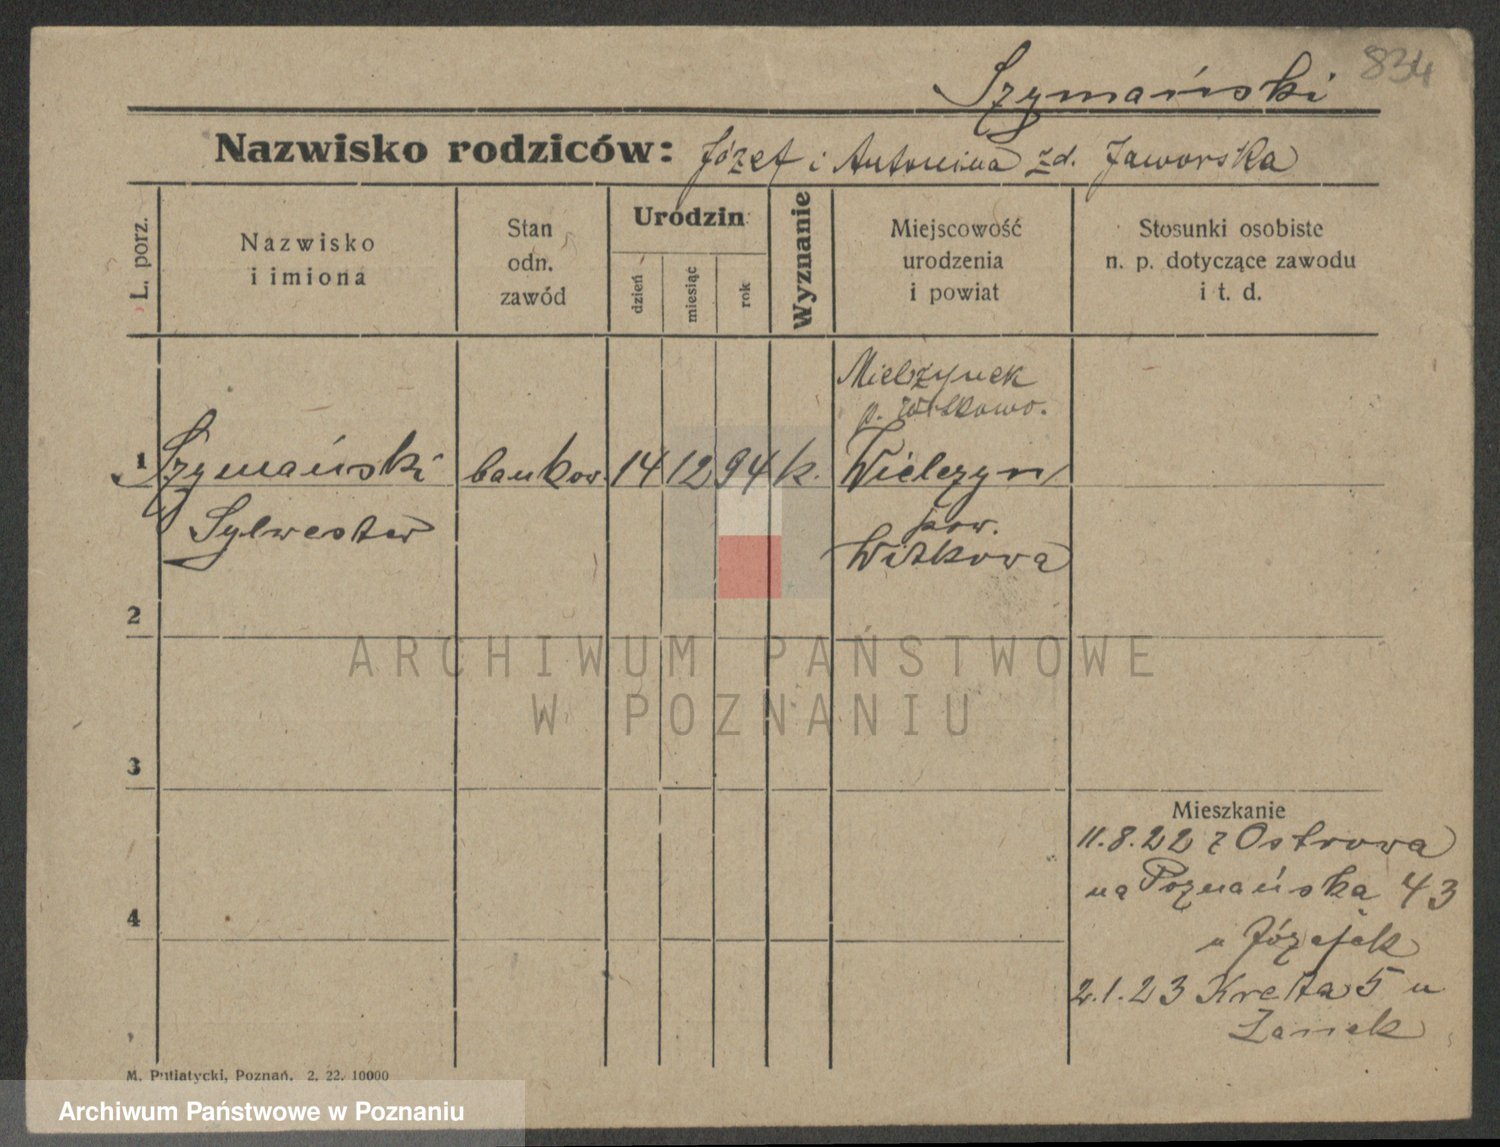 834
Szymański
Nazwisko rodziców: Józef i Antonina zd. Jaworska
L. porz.
Nazwisko
i imiona
Stan
odn.
zawód
Urodzin
dzień
miesiąc
rok
Wyznanie
Miejscowość
urodzenia
i powiat
Stosunki osobiste
n. p. dotyczące zawodu
i t. d.
Mielżynek
p. Witkowo.
1 Szymański bankow. 14 12 94 k. Wielczyn
Sylwester
pow.
Witkowa
2
ARCHIWUM PAŃSTWOWE
W POZNANIU
3
Mieszkanie
11.8.22 z Ostrowa
na Poznańska 43
4
u Józefek
2.1.23 Kreta 5 u
Zanek
M. Putiatycki, Poznań, 2. 22. 10000
Archiwum Państwowe w Poznaniu